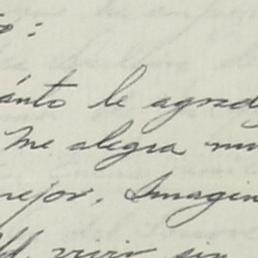 o:
ánto le agrad
Me alegra mu
mejor. Imagin
vivir sin